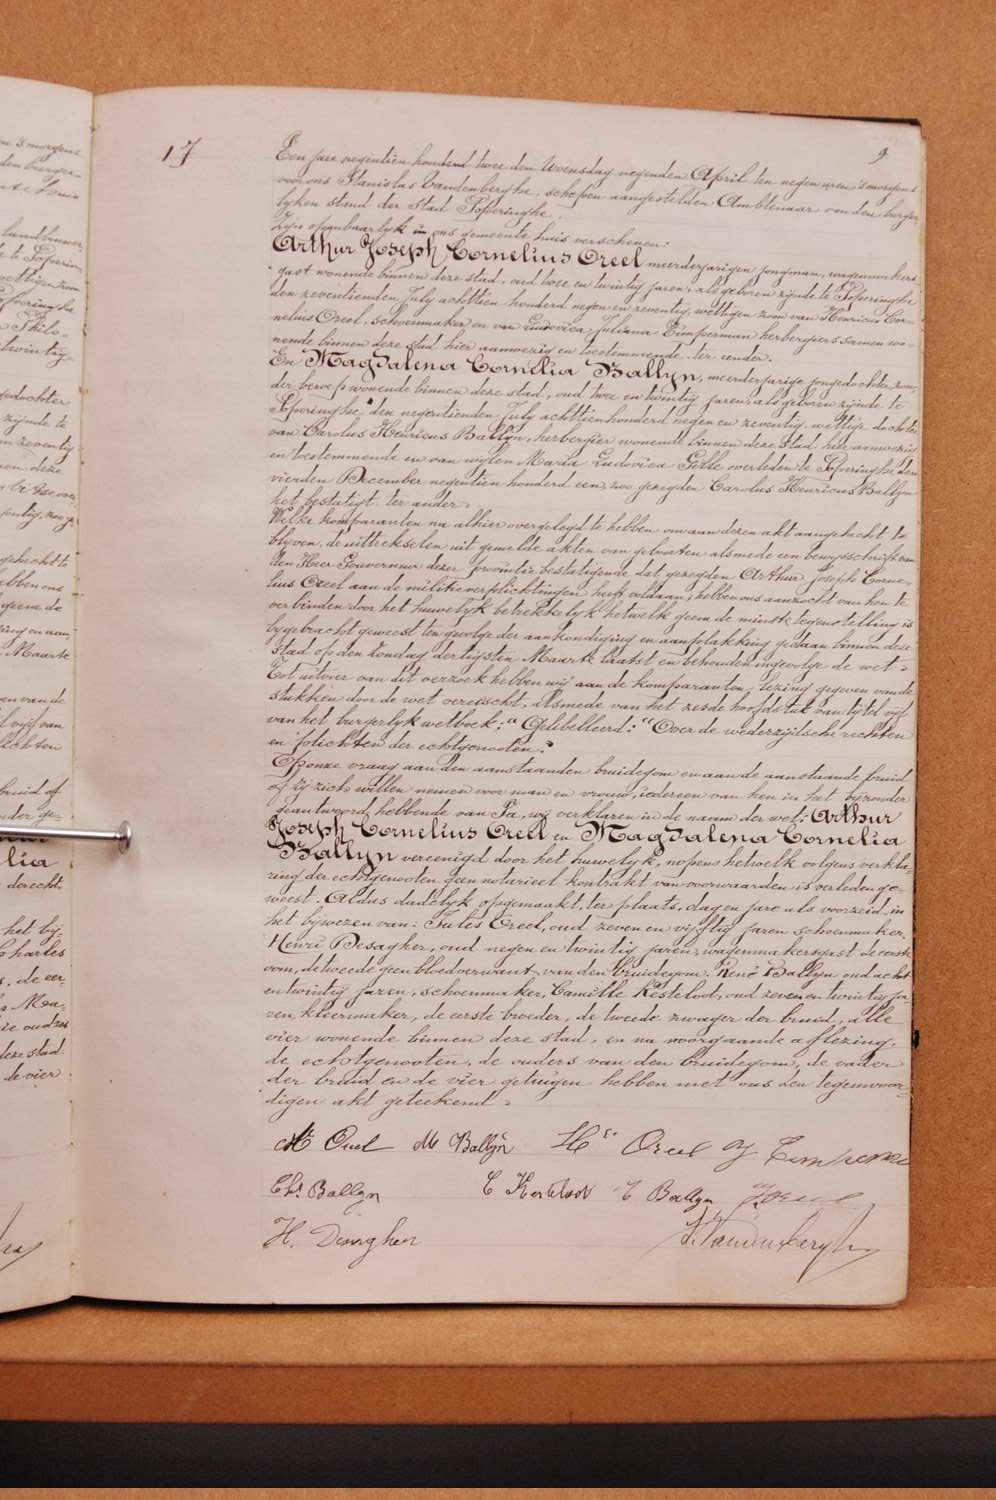 17
9
Een jare negentien honderd twee den Woensdag negenden April ten negen uren 's morgens
voor ons Stanislas Vandenberghe, schepen aangestelden Ambtenaar van den burger-
lyken stand der stad Poperinghe.
Zijn openbaarlyk in ons gemeente huis verschenen:
Arthur Joseph Cornelius Creel meerderjarigen jongman, wagenmakers
gast wonende binnen deze stad, oud twee en twintig jaren, als geboren zijnde te Poperinghe
den zeventienden July achttien honderd negen en zeventig, wettigen zoon van Henricus Cor-
nelius Creel, schoenmaker en van Ludovica Juliana Timperman herbergiers samen wo-
nende binnen deze stad hier aanwezig en toestemmende ter eender.
En Magdalena Cornelia Ballyn, meerderjarige jongedochter, zon-
der beroep wonende binnen deze stad, oud twee en twintig jaren, als geboren zijnde te
Poperinghe den negentienden July achttienhonderd negen en zeventig wettige dochter
van Carolus Henricus Ballyn, herbergier wonende binnen deze stad hier aanwezig
en toestemmende en van wylen Maria Ludovica Gelle overleden te Poperinghe den
vierden December negentien honderd een, zoo gezegden Carolus Henricus Ballyn
het bestatigt ter ander.
Welke komparanten na alhier overgelegd te hebben om aan dezen akt aangehecht te
blyven, de uittrekselen uit gemelde akten van geboorten alsmede een bewysschrift van
den Heer Gouverneur dezer provintie bestatigende dat gezegden Arthur Joseph Corne-
lius Creel aan de militieverplichtingen heeft voldaan, hebben ons aanzocht van hen te
verbinden door het huwelyk betrekkelyk hetwelk geen de minste tegenstelling is
bygebracht geweest ten gevolge der aankondiging en aanplakking gedaan binnen deze
stad op den Zondag dertigsten Maarte laatst en behouden ingevolge de wet.
Tot uitvoer van dit verzoek hebben wij aan de komparanten, lezing gegeven van de
stukken door de wet vereischt, alsmede van het zesde hoofdstuk van tytel vijf
van het burgerlyk wetboek; "Gelibelleerd: "Over de wederzijdsche rechten
en plichten der echtgenooten."
Op onze vraag aan den aanstaanden bruidegom en aan de aanstaande bruid
of zy zich willen nemen voor man en vrouw, iedereen van hen in het byzonder
geantwoord hebbende van Ja, wij verklaren in de naam der wet: Arthur
Joseph Cornelius Creel en Magdalena Cornelia
Ballyn vereenigd door het huwelyk, nopens hetwelk volgens verkla-
ring der echtgenooten geen notarieel kontrakt van voorwaarden is verleden ge-
weest. Aldus dadelyk opgemaakt, ter plaats, dag en jare als voorzeid, in
het bijwezen van: Jules Creel, oud zeven en vijftig jaren schoenmaker,
Henri Desagher, oud negen en twintig jaren, wagenmakersgast de eerste
oom, de tweede geen bloedverwant van den bruidegom. René Ballyn oud acht
en twintig jaren, schoenmaker, Camille Kesteloot, oud zeven en twintig ja-
ren, kleermaker, de eerste broeder, de tweede zwager der bruid, alle
vier wonende binnen deze stad, en na voorgaande aflezing,
de echtgenooten, de ouders van den bruidegom, de vader
der bruid en de vier getuigen hebben met ons den tegenwoor-
digen akt geteekend.
Creel M Ballyn Hri Creel J Timperman
Chs Ballyn C Kesteloot Ballyn J. Creel
H. Desagher S. Vandenberghe